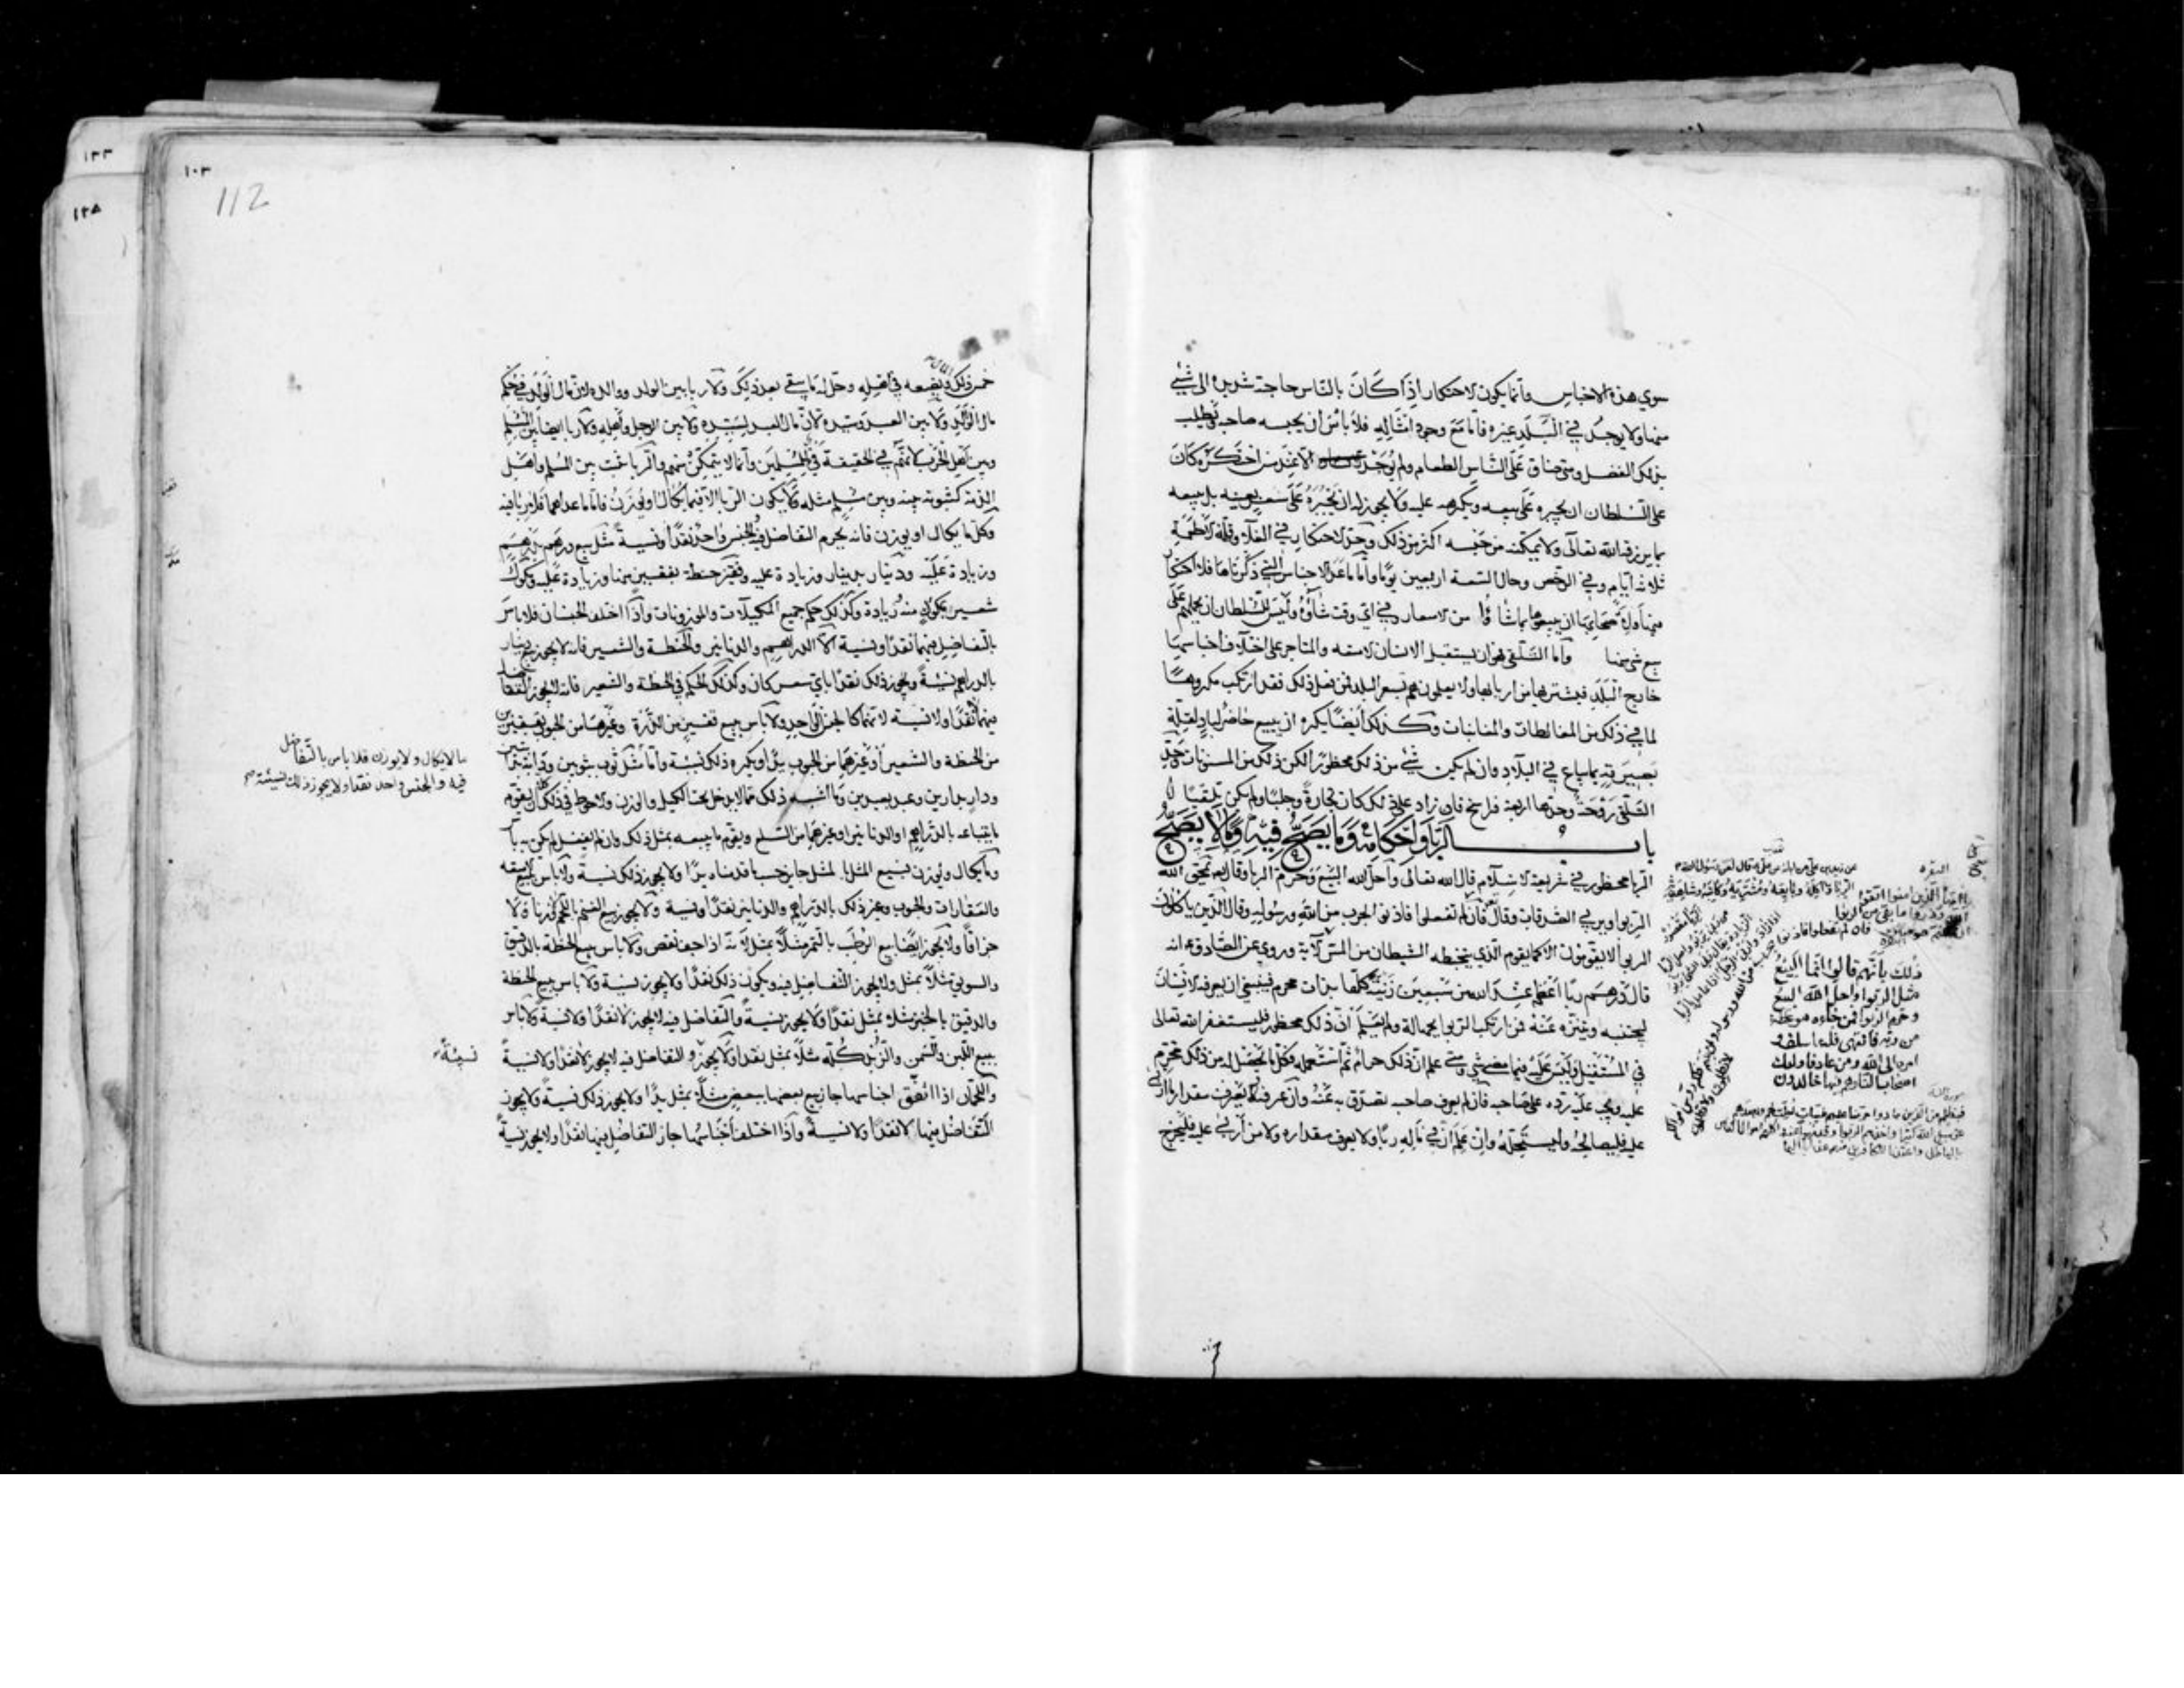 سوي هذه الاجناس وانما يكون الاحتكار اذا كان بالناس حاجة شديدة الى شيء
منها ولا يوجد في البلد غيره فاما مع وجود امثاله فلا باس ان يحبسه صاحبه ويطلب
بذلك الفضل ومتى ضاق على الناس الطعام ولم يوجد الا عند من احتكره كان
على السلطان ان يجبره على بيعه ويكرهه عليه ولا يجوز له ان يجبره على سعر بعينه بل يبيعه
بما يرزقه الله تعالى ولا يمكنه من حبسه اكثر من ذلك وحد الاحتكار في الغلاء وقلة الاطعمة
ثلاثة ايام وفي الرخص وحال السعة اربعين يوما واما ما عدا الاجناس التي ذكرناها فلا احتكار
فيها ولاصحابها ان يبيعوها بما شاؤا من الاسعار في اي وقت شاؤه وليس للسلطان ان يحملهم على
بيع شيء منها واما التلقى فهو ان يستقبل الانسان الامتعة والمتاجر على اختلاف اجناسها
خارج البلد فيشتريها من اربابها ولا يعلمون هم بسعر البلد فمن فعل ذلك فقد ارتكب مكروها
لما في ذلك من المغالطات والمغابنات وكذلك ايضا يكره ان يبيع حاضر لباد لقلة
بصيرته بما يباع في البلاد وان لم يكن شيء من ذلك محظورا لكن ذلك من المسنونات وحد
التلقى روحة وحدها اربعة فراسخ فان زاد على ذلك كان تجارة وجلبا ولم يكن تلقيا
باب الربا واحكامه وما يصح فيه وما لا يصح
الربا محظور في شريعة الاسلام قال الله تعالى واحل الله البيع وحرم الربا وقال يمحق الله
الربوا ويربي الصدقات وقال فان لم تفعلوا فاذنوا بحرب من الله ورسوله وقال الذين ياكلون
الربوا لا يقومون الا كما يقوم الذي يتخبطه الشيطان من المس الاية وروي عن الصادق ع انه
قال درهم ربا اعظم عند الله من سبعين زنية كلها بذات محرم فينبغي ان يعرفه الانسان
ليجتنبه ويتنزه عنه فمن ارتكب الربوا بجهالة ولم يعلم ان ذلك محظور فليستغفر الله تعالى
في المستقبل وليس عليه فيما مضى شيء ومتى علم ان ذلك حرام ثم استعمله فكل ما يحصل له من ذلك محرم
عليه ويجب عليه رده على صاحبه فان لم يعرف صاحبه تصدق به عنه وان عرفه ولا يعرف مقدار ما اربى
عليه فليصالحه وليستحله وان علم ان في ماله ربا ولا يعرف مقداره ولا من اربى عليه فليخرج
البقره
يا ايها الذين امنوا اتقوا
الله وذروا ما بقى من الربوا
فان لم تفعلوا فاذنوا
ذلك بانهم قالوا انما البيع
مثل الربوا واحل الله البيع
وحرم الربوا فمن جاءه موعظة
من ربه فانتهى فله ما سلف و
امره الى الله ومن عاد فاولئك
اصحاب النار هم فيها خالدون
١٠٣
112
١٣٣
١٣٨
خمس ذلك ويضعه في اهله وحل له ما يبقى بعد ذلك ولا ربا بين الولد ووالده لان مال الولد في حكم
مال الوالد ولا بين العبد وسيده لان مال العبد لسيده ولا بين الرجل واهله ولا ربا ايضا بين المسلم
وبين اهل الحرب لانهم في الحقيقة فيء للمسلمين وانما لا يتمكن منهم والربا يثبت بين المسلم واهل
الذمة كثبوته بينه وبين مسلم مثله ولا يكون الربا الا فيما يكال او يوزن فاما ما عداهما فلا ربا فيه
وكل ما يكال او يوزن فانه يحرم التفاضل فيه والجنس واحد نقدا ونسية مثل بيع درهم بدرهم
وزيادة عليه ودينار بدينار وزيادة عليه وقفيز حنطة بقفيز منها وزيادة عليه ومكوك
شعير بمكوك منه وزيادة وكذلك حكم جميع المكيلات والموزونات واذا اختلف الجنسان فلا باس
بالتفاضل فيهما نقدا ونسية الا الدراهم والدنانير والحنطة والشعير فانه لا يجوز بيع دينار
بالدراهم نسية ويجوز ذلك نقدا باي سعر كان وكذلك الحكم في الحنطة والشعير فانه لا يجوز التفاضل
فيهما لا نقدا ولا نسية لانهما كالجنس الواحد ولا باس ببيع قفيز من الذرة وغيرها من الحبوب بقفيزين
من الحنطة والشعير او غيرهما من الحبوب يدا ويكره ذلك نسية واما مثل ثوب بثوبين ودابة بدابتين
ودار بدارين وعبد بعبدين وما اشبه ذلك مما لا يدخل تحت الكيل والوزن والاحوط في ذلك ان يقوم
ما يبتاعه بالدراهم او الدنانير او غيرهما من السلع ويقوم ما يبيعه بمثل ذلك وان لم يفعل لم يكن به باس
وما يكال ويوزن فبيع المثل بالمثل جايز حسبما قدمناه يدا ولا يجوز ذلك نسية ولا باس ببيع الامتعة
والعقارات والحبوب وغير ذلك بالدراهم والدنانير نقدا ونسية ولا يجوز بيع الغنم باللحم وزنا ولا
جزافا ولا يجوز ايضا بيع الرطب بالتمر مثلا بمثل لانه اذا جف نقص ولا باس ببيع الحنطة بالدقيق
والسويق مثلا بمثل ولا يجوز التفاضل فيه ويكون ذلك نقدا ولا يجوز نسية ولا باس ببيع الحنطة
والدقيق بالخبز مثلا بمثل نقدا ولا يجوز نسية والتفاضل فيه لا يجوز لا نقدا ولا نسية ولا باس
ببيع اللبن والسمن والزبد كله مثلا بمثل نقدا ولا يجوز والتفاضل فيه لا يجوز لا نقدا ولا نسية
واللحمان اذا اتفق اجناسها جاز بيع بعضها ببعض مثلا بمثل يدا ولا يجوز ذلك نسية ولا يجوز
التفاضل فيها لا نقدا ولا نسية واذا اختلف اجناسها جاز التفاضل فيها نقدا ولا يجوز نسية
ما لا يكال ولا يوزن فلا باس بالتفاضل
فيه والجنس واحد نقدا ولا يجوز ذلك نسيئة صح
نسيئة